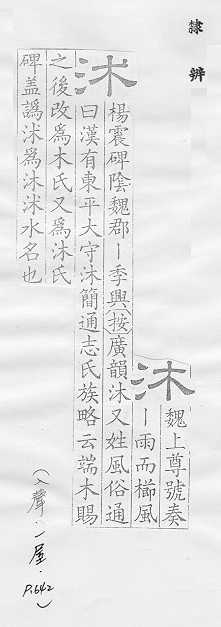 隸辨
沐
魏上尊號奏
｜雨而櫛風
沭
楊震碑陰魏郡｜季興(按)廣韻沐又姓風俗通
曰漢有東平大守沐簡通志氏族略云端木賜
之後改爲木氏又爲沐氏
碑盖譌沐爲沭沭水名也
(入聲．一屋．P.642)